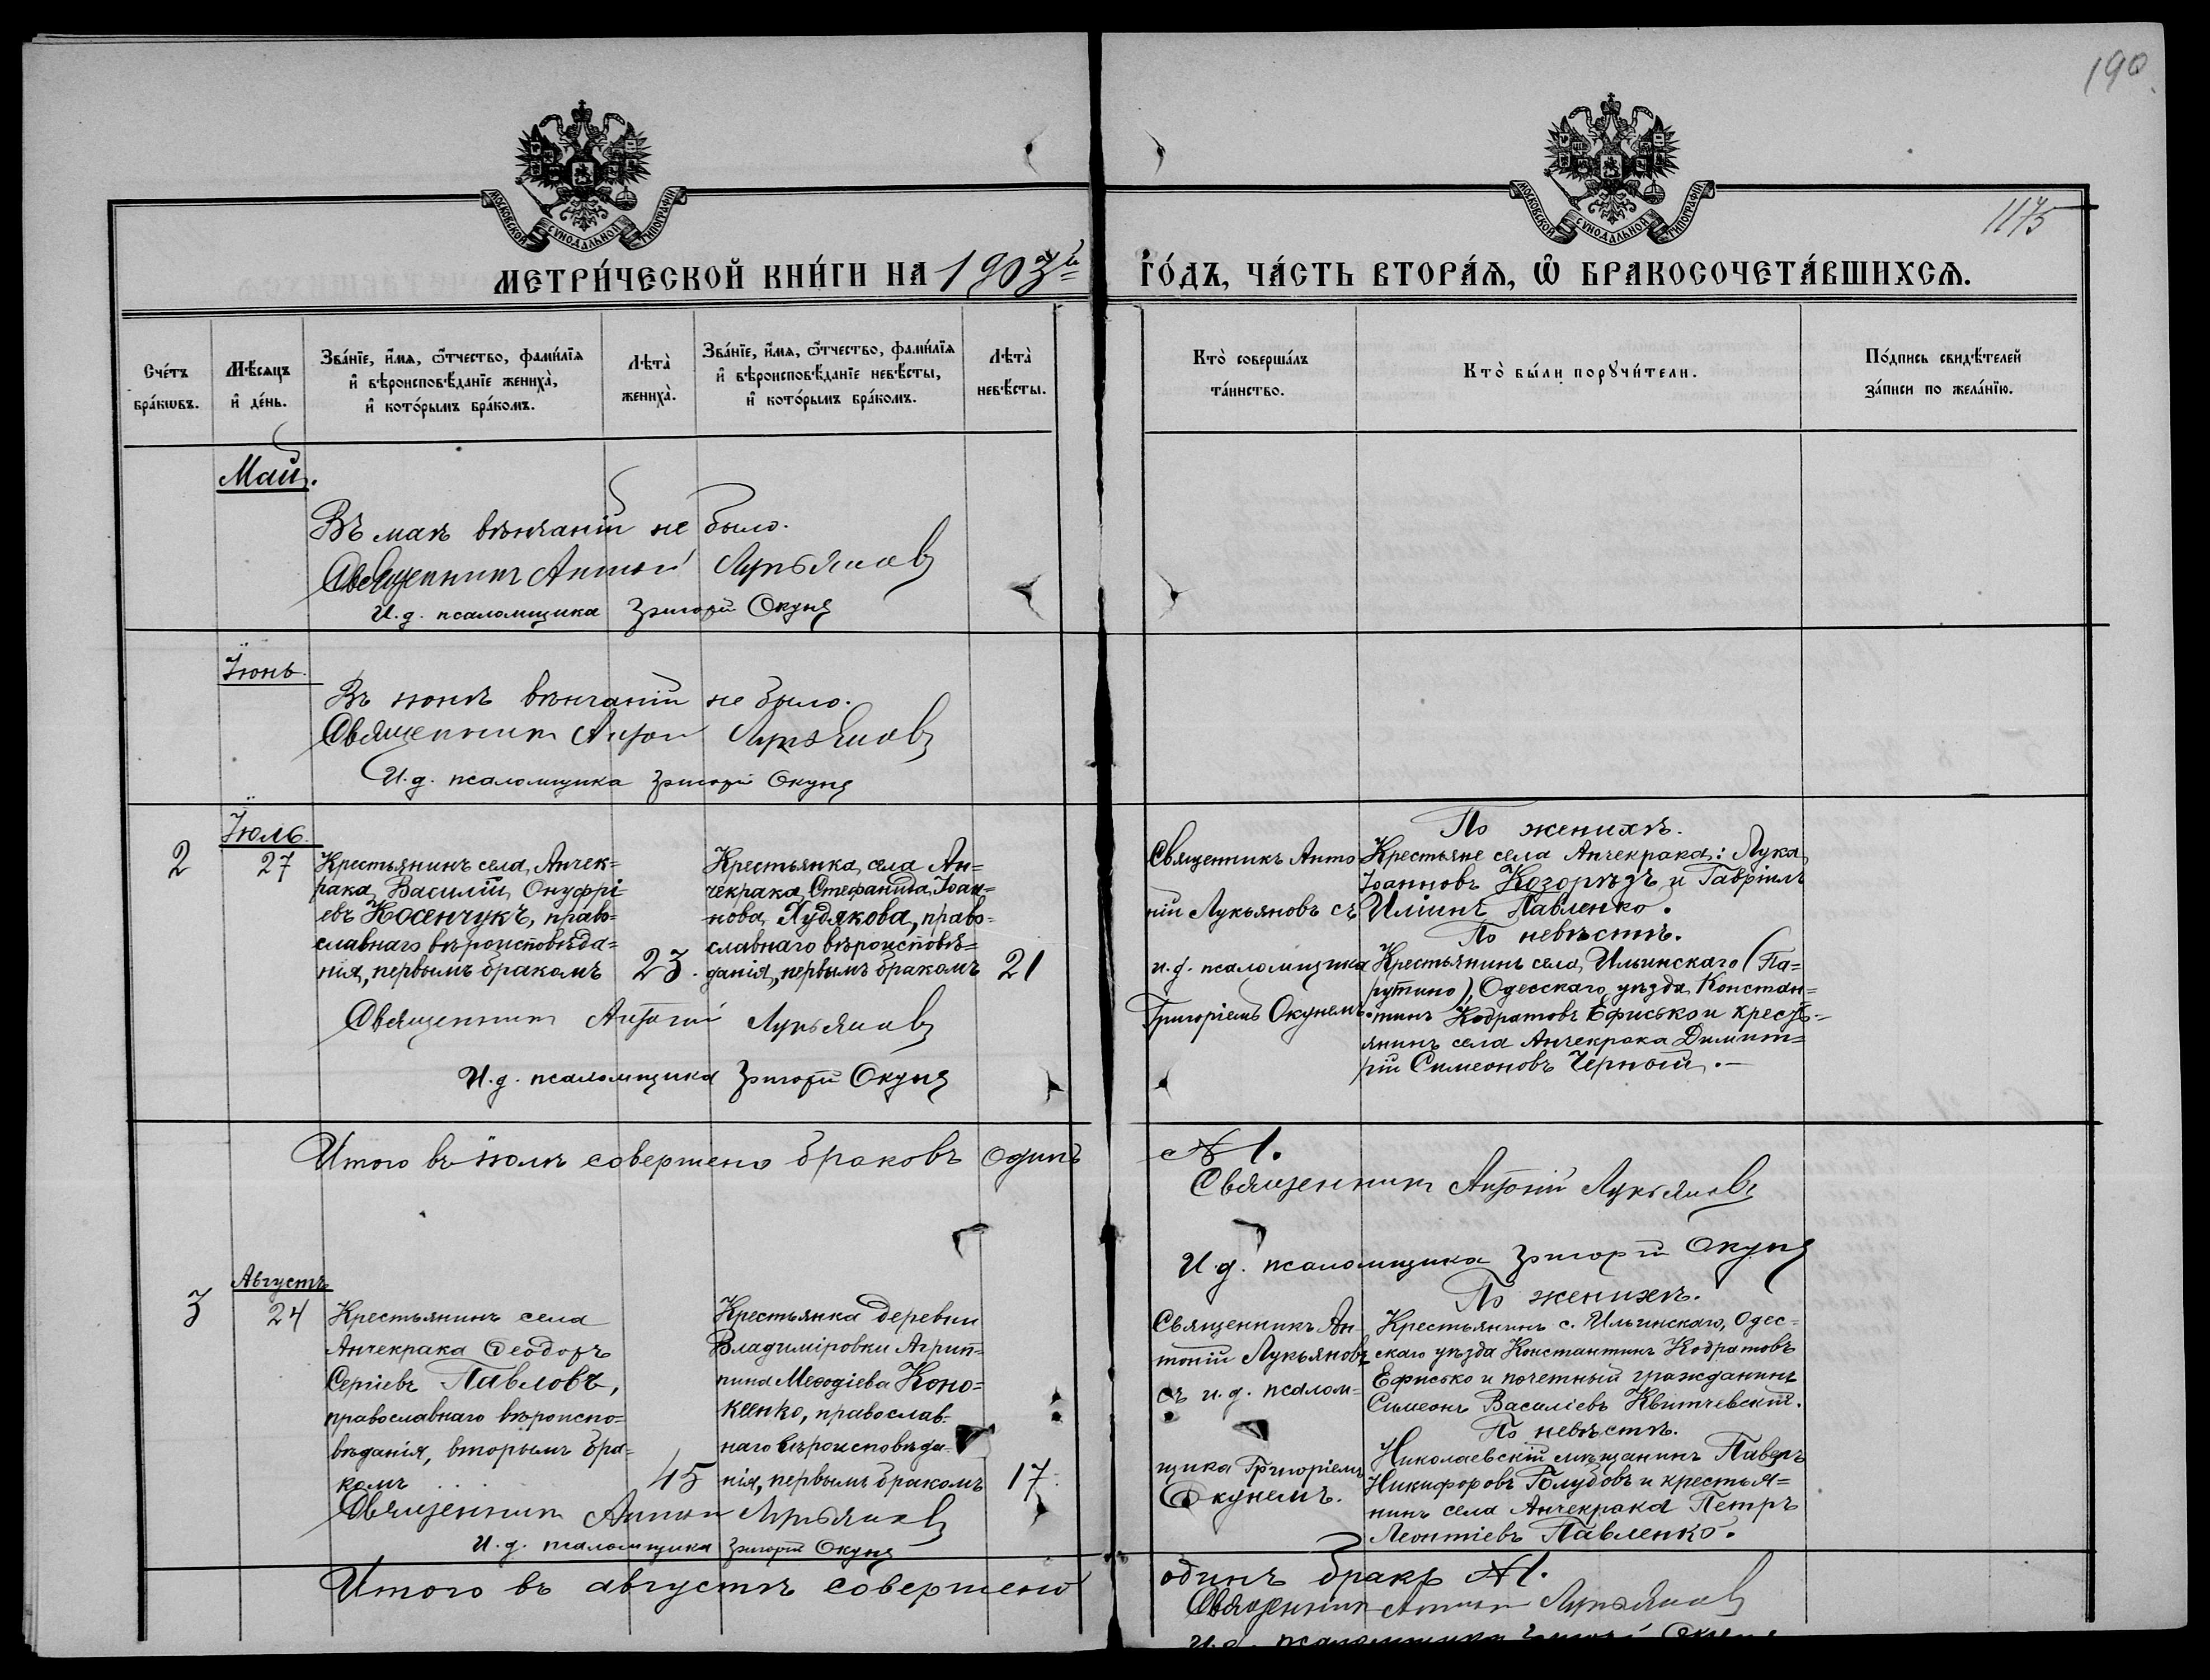 190
1175
МОСКОВСКОЙ СѴНОДАЛЬНОЙ ТИПОГРАФІИ
МОСКОВСКОЙ СѴНОДАЛЬНОЙ ТИПОГРАФІИ
МЕТРИ́ЧЕСКОЙ КНИ́ГИ НА 1903й ГО́ДЪ, ЧА́СТЬ ВТОРА́Ѧ, Ѽ БРАКОСОЧЕТА́ВШИХСѦ.
Сче́тъ
бра́кѡвъ.
Мѣ́сяцъ
и҆ де́нь.
Зва́нїе, и҆́мѧ, ѻ҆́тчество, фами́лїѧ
и҆ вѣроисповѣ́данїе жениха̀,
и҆ кото́рымъ бра́комъ.
Лѣта̀
жениха̀.
Зва́нїе, и҆́мѧ, ѻ҆́тчество, фами́лїѧ
и҆ вѣроисповѣ́данїе невѣ́сты,
и҆ кото́рымъ бра́комъ.
Лѣта̀
невѣ́сты.
Кто̀ соверша́лъ
та́инство.
Кто̀ бы́ли порꙋчи́тели.
По́дпись свидѣ́телей
за́писи по жела́нїю.
Май.
Въ маѣ вѣнчаній не было.
Священникъ Антоній Лукьяновъ
И. д. псаломщика Григорій Окунь
Іюнь.
Въ іюнѣ вѣнчаній не было.
Священникъ Антоній Лукьяновъ
И. д. псаломщика Григорій Окунь
Іюль.
2
27
Крестьянинъ села Анчек=
рака Василій Онуфрі=
евъ Носенчукъ, право=
славнаго вѣроисповѣда=
нія, первымъ бракомъ
23.
Крестьянка села Ан=
чекрака Стефанида Іоан=
нова Худякова, право=
славнаго вѣроисповѣ=
данія, первымъ бракомъ
21
Священникъ Анто
ній Лукьяновъ съ
и. д. псаломщика
Григоріемъ Окунемъ.
По женихѣ.
Крестьяне села Анчекрака: Лука
Іоанновъ Козорѣзъ и Гавріилъ
Иліинъ Павленко.
По невѣстѣ.
Крестьянинъ села Ильинскаго (Па=
рутино), Одесскаго уѣзда Констан=
тинъ Кодратовъ Ефисько и кресть=
янинъ села Анчекрака Димит=
рій Симеоновъ Чёрный.—
Священникъ Антоній Лукьяновъ
И. д. псаломщика Григорій Окунь
Итого въ іюлѣ совершено браковъ одинъ № 1.
Священникъ Антоній Лукьяновъ
И. д. псаломщика Григорій Окунь
Августъ
3
24
Крестьянинъ села
Анчекрака Ѳеодоръ
Сергіевъ Павловъ,
православнаго вѣроиспо=
вѣданія, вторымъ бра=
комъ . . .
45
Крестьянка деревни
Владиміровки Агрип=
пина Меѳодіева Коно=
кѣенко, православ=
наго вѣроисповѣда=
нія, первымъ бракомъ
17.
Священникъ Ан
тоній Лукьяновъ
съ и. д. псалом=
щика Григоріемъ
Окунемъ.
По женихѣ.
Крестьянинъ с. Ильинскаго, Одес=
скаго уѣзда Константинъ Кодратовъ
Ефисько и почетный гражданинъ
Симеонъ Василіевъ Квитчевскій.
По невѣстѣ.
Николаевскій мѣщанинъ Павелъ
Никифоровъ Голубовъ и крестья=
нинъ села Анчекрака Петръ
Леонтіевъ Павленко.
Священникъ Антоній Лукьяновъ
И. д. псаломщика Григорій Окунь
Итого въ августѣ совершено одинъ бракъ № 1.
Священникъ Антоній Лукьяновъ
И. д. псаломщика Григорій Окунь